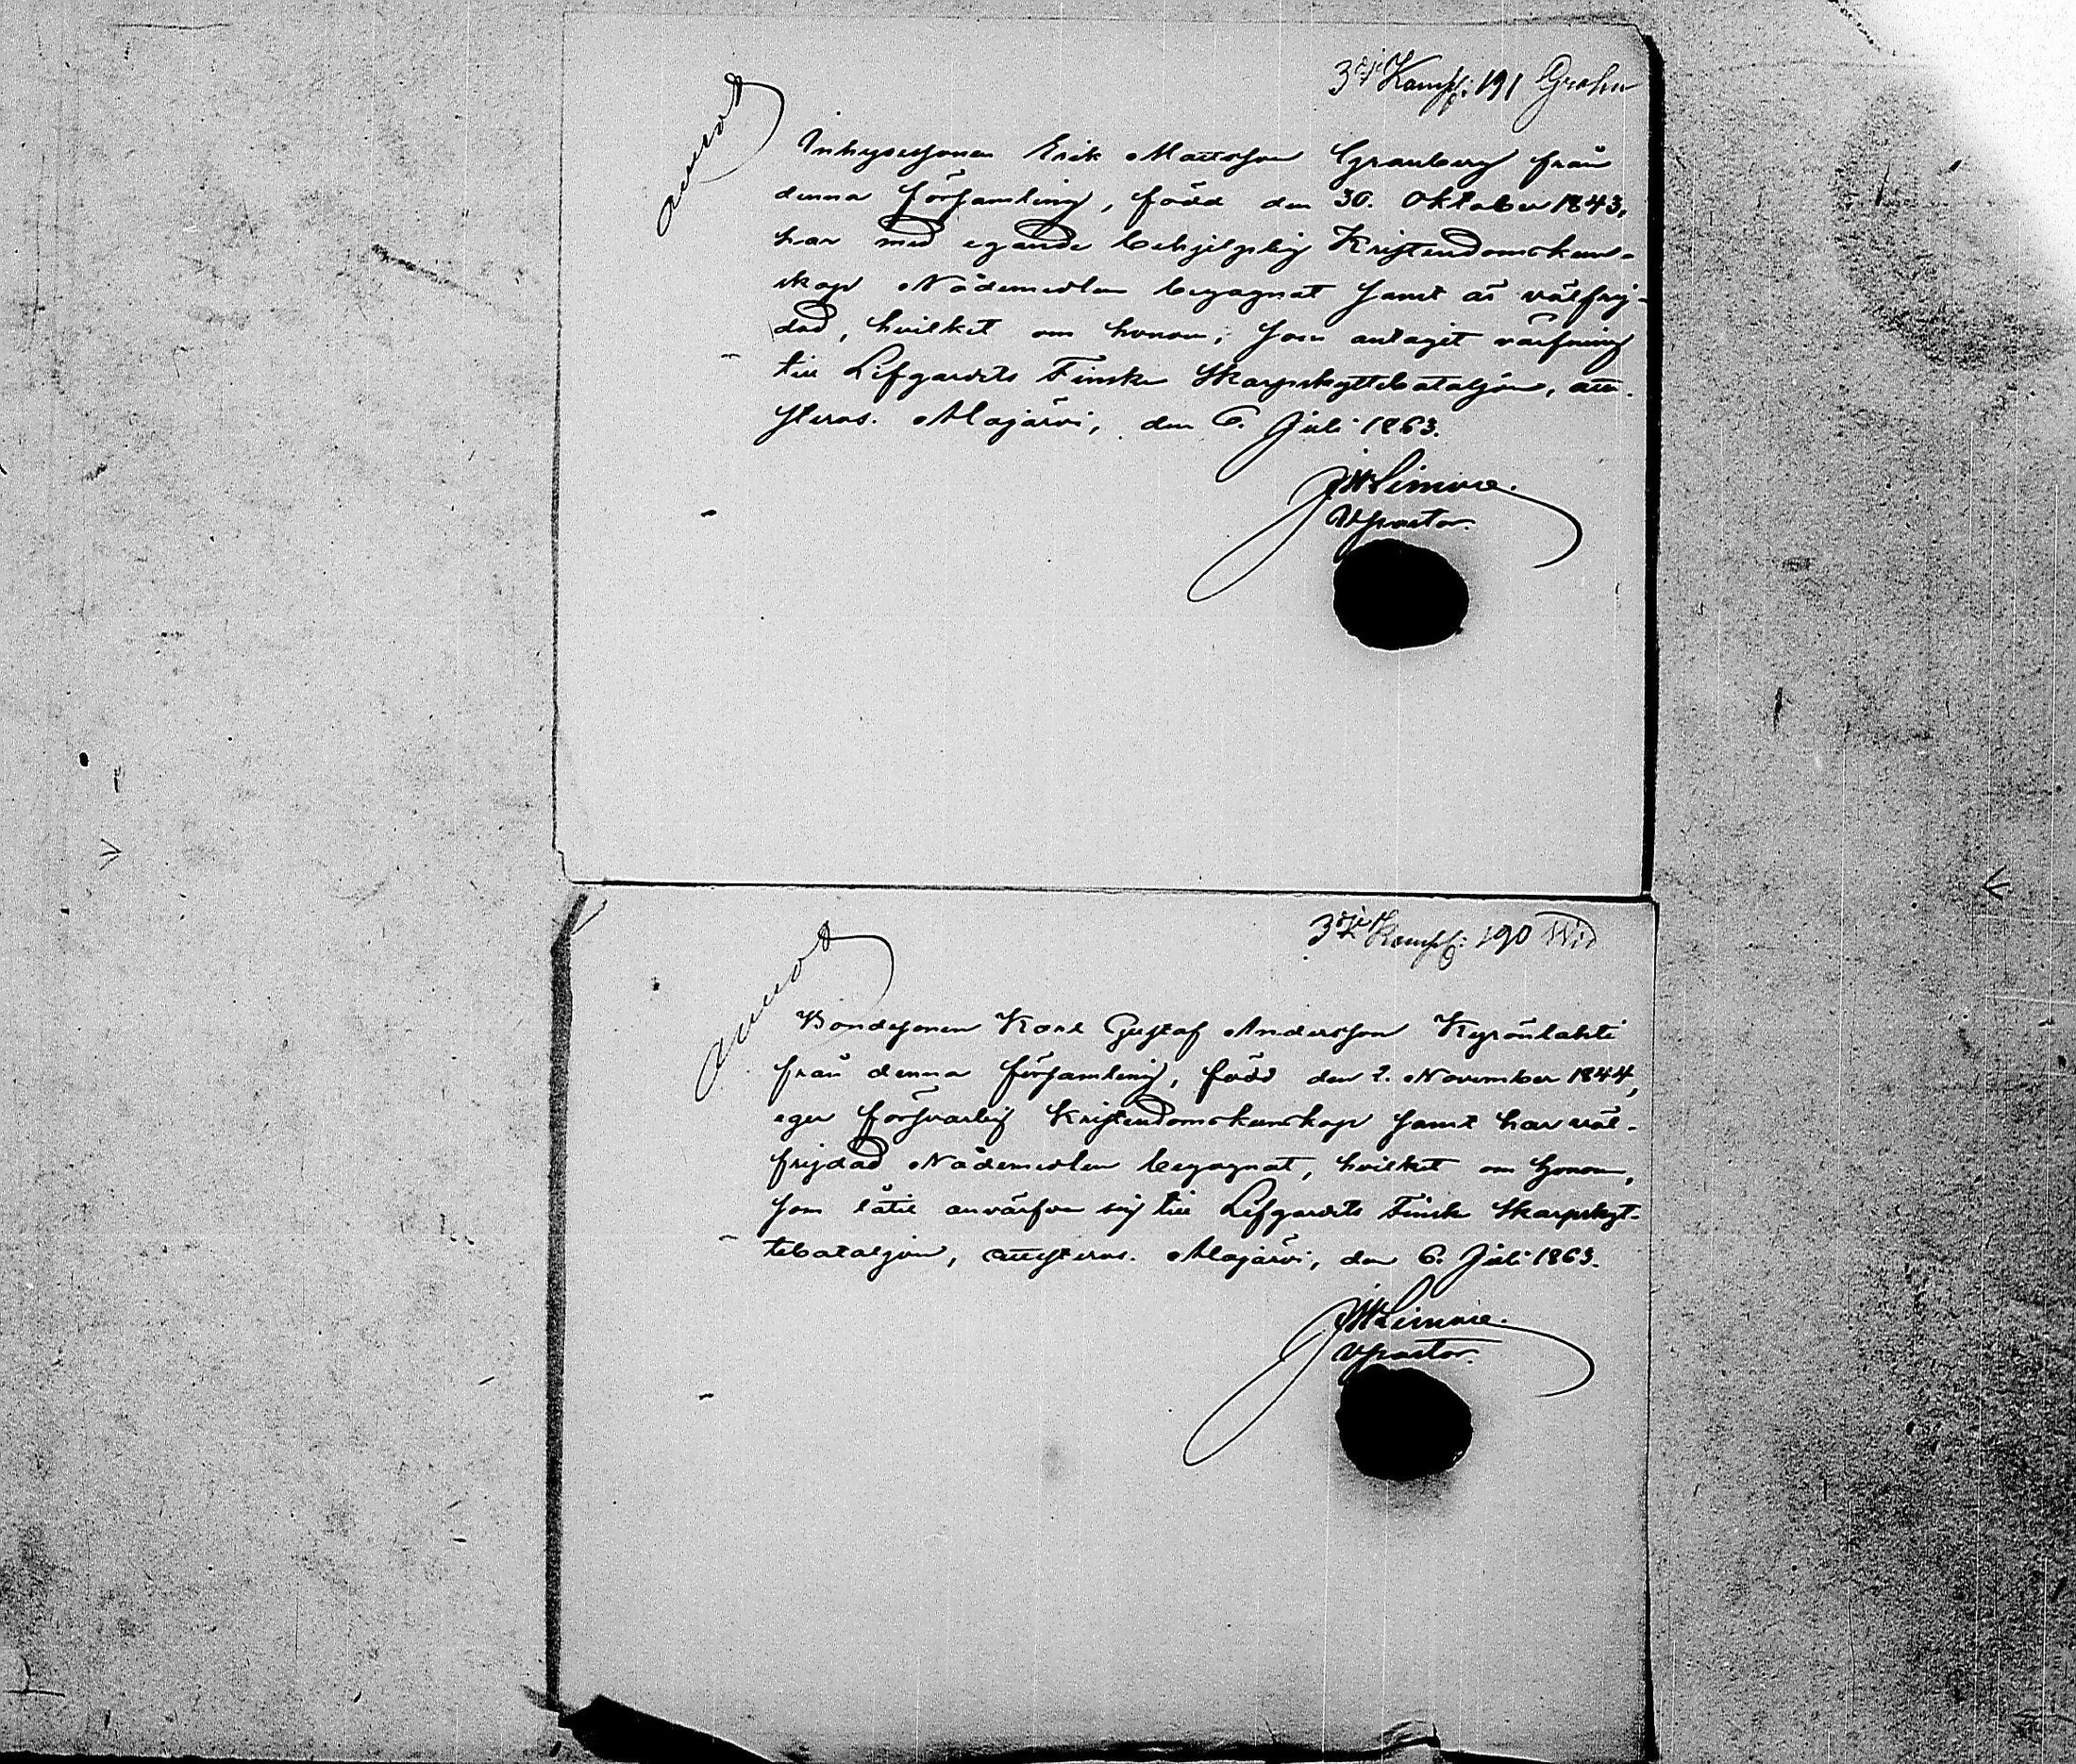 3dje Komp: 191 Grohn
Inhysesonen Erik Mattsson Granberg från
denna församling, född den 30. Oktober 1843,
har med egande behjelplig Kristendomskun-
skap Nådemedlen begagnat samt är välfrej-
dad, hvilket om honom, som antagit värfning
till Lifgardets Finska Skarpskyttebataljon, atte-
steras. Alajärvi, den 6. Juli 1863.
Vpastor.
3dje Komp: 190 Wid
Bondesonen Karl Gustaf Andersson Kyrönlahti
från denna församling, född den 2. November 1844,
eger försvarlig Kristendomskunskap samt har väl-
frejdad Nådemedlen begagnat, hvilket om honom,
som låtit anvärfva sig till Lifgardets Finska Skarpskyt-
tebataljon, attesteras. Alajärvi, den 6. Juli 1863.
Vpastor.